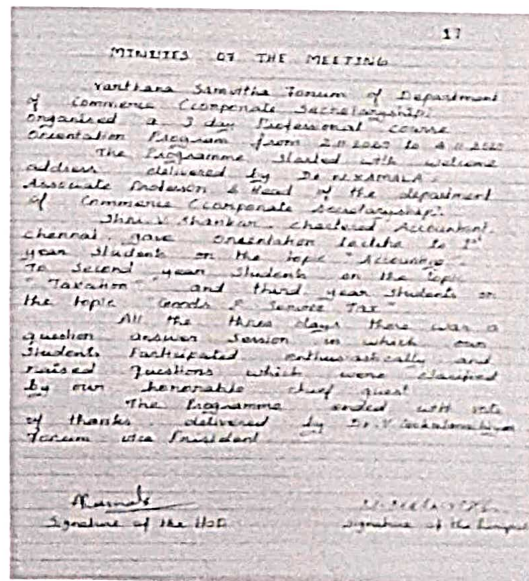 17
MINUTES OF THE MEETING
Vanthana Samutha Forum of Department
of Commerce (Corporate Secretaryship)
Organised a 3 day Professional course
Orientation Program from 2.11.2020 to 4.11.2020
The Programme started with welcome
address delivered by Dr.
Associate Professor & Head of the department
of Commerce (Corporate Secretaryship).
Shri. V. Shankar, chartered Accountant,
chennai gave Orientation lecture to 1st
year Students on the topic "Accounting"
To Second year Students on the topic
"Taxation" and third year Students on
the topic "Goods & Service Tax"
All the three days there was a
question answer session in which our
Students Participated enthusiastically and
raised questions which were clarified
by our honorable chief guest
The Programme ended with vote
of thanks delivered by Dr. V.
Forum vice President
Signature of the HOD
Signature of the